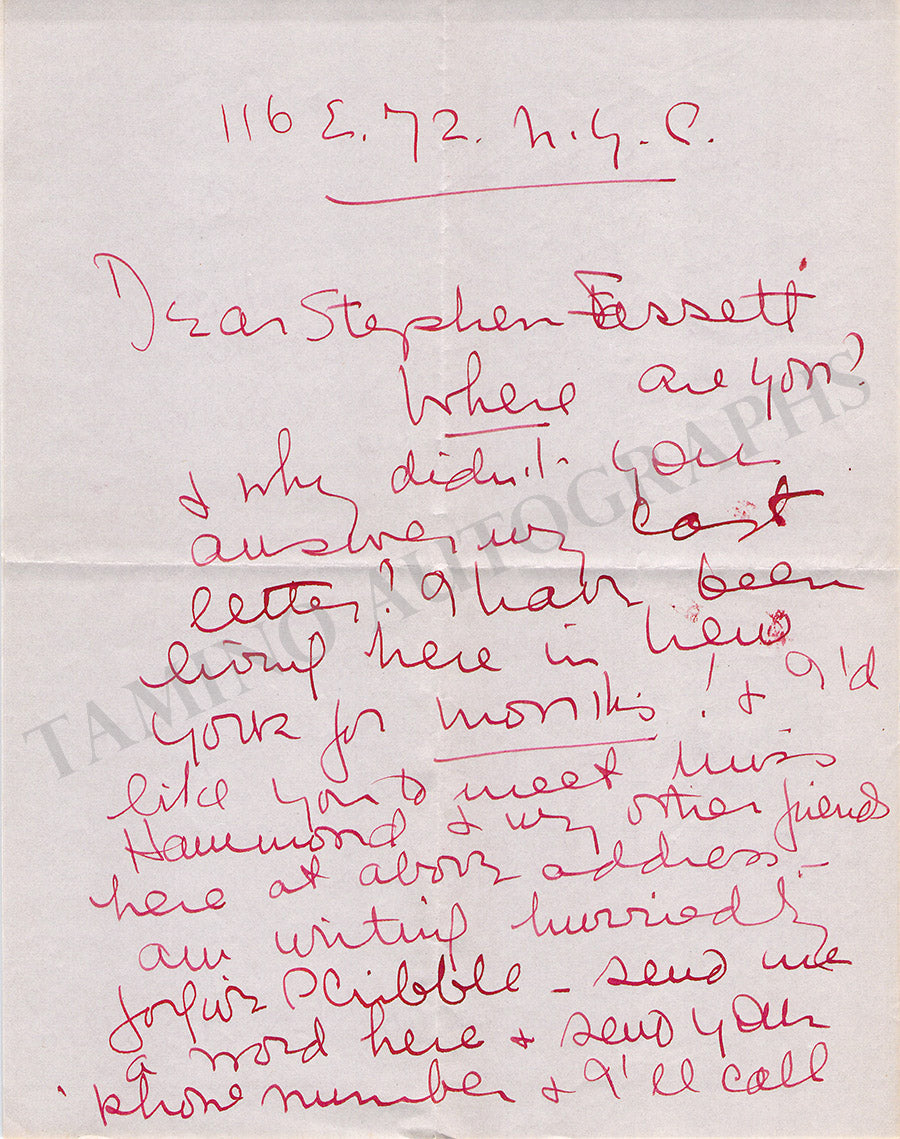 116 E. 72. N.Y.C.
Dear Stephen Fassett
Where are you?
& why didn't you
answer my last
letter? I have been
living here in New
York for months! & I'd
like you to meet Miss
Hammond & my other friends
here at above address –
am writing hurriedly
forgive scribble – send me
a word here & send your
phone number & I'll call
TAMINO AUTOGRAPHS